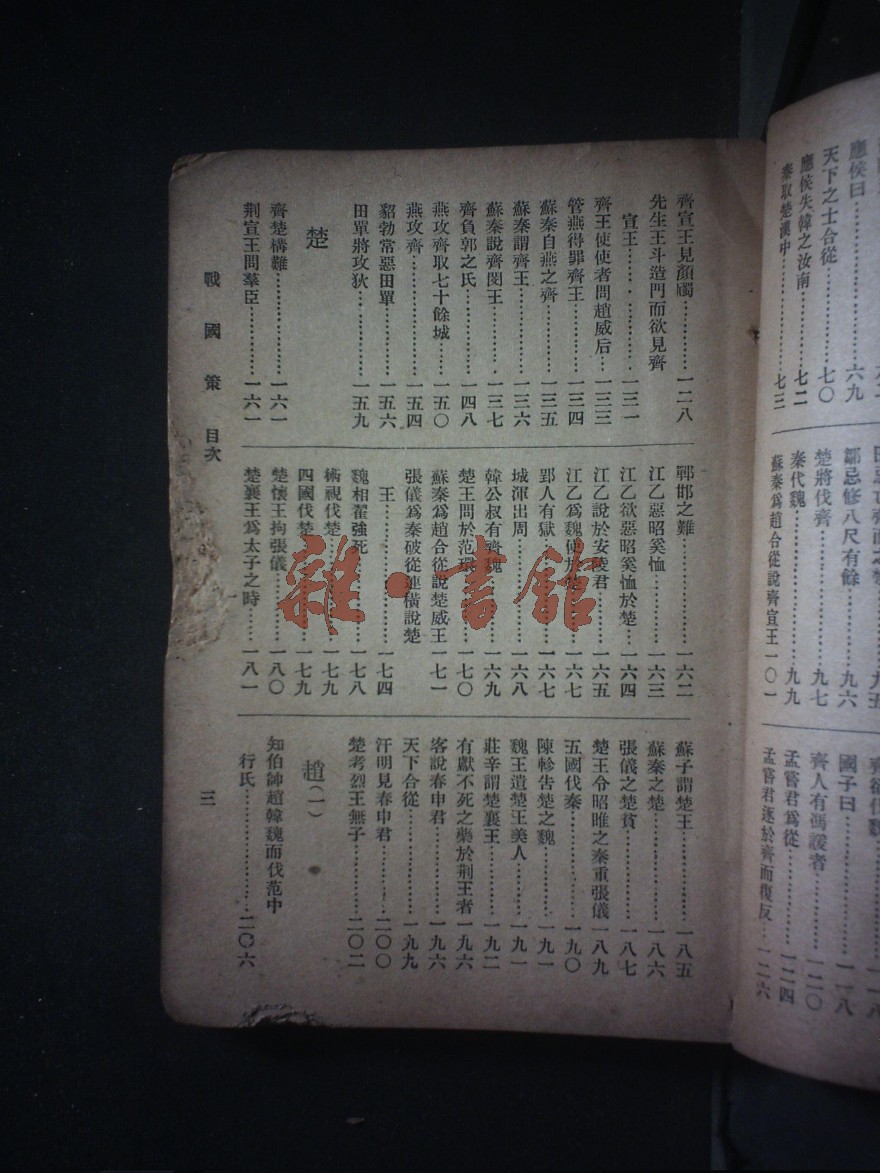 應侯曰……………六九
天下之士合從………七〇
應侯失韓之汝南……七二
秦取楚漢中…………七三
鄒忌修八尺有餘……九六
楚將伐齊……………九七
秦代魏………………九九
蘇秦爲趙合從說齊宣王一〇一
國子曰……………一一八
齊人有馮諼者……一二〇
孟嘗君爲從………一二四
孟嘗君逐於齊而復反…一二六
齊宣王見顏斶…………一二八
先生王斗造門而欲見齊
宣王……………一三一
齊王使使者問趙威后…一三三
管燕得罪齊王………一三四
蘇秦自燕之齊………一三五
蘇秦謂齊王…………一三六
蘇秦說齊閔王………一三七
齊負郭之氏…………一四八
燕攻齊取七十餘城…一五〇
燕攻齊………………一五四
貂勃常惡田單………一五六
田單將攻狄…………一五九
楚
齊楚構難……………一六一
荆宣王問羣臣………一六一
邯鄲之難……………一六二
江乙惡昭奚恤………一六三
江乙欲惡昭奚恤於楚…一六四
江乙說於安陵君……一六五
江乙爲魏使於楚……一六七
郢人有獄……………一六七
城渾出周……………一六八
韓公叔有齊魏………一六九
楚王問於范環………一七〇
蘇秦爲趙合從說楚威王一七一
張儀爲秦破從連橫說楚
王………………一七四
魏相翟強死…………一七八
術視伐楚……………一七九
四國伐楚……………一七九
楚懷王拘張儀………一八〇
楚襄王爲太子之時…一八一
蘇子謂楚王…………一八五
蘇秦之楚……………一八六
張儀之楚貧…………一八七
楚王令昭雎之秦重張儀一八九
五國伐秦……………一九〇
陳軫告楚之魏………一九一
魏王遺楚王美人……一九一
莊辛謂楚襄王………一九二
有獻不死之藥於荆王者一九六
客說春申君…………一九六
天下合從……………一九九
汗明見春申君………二〇〇
楚考烈王無子………二〇二
趙(一)
知伯帥趙韓魏而伐范中
行氏……………二〇六
戰國策 目次
三
雜·書館